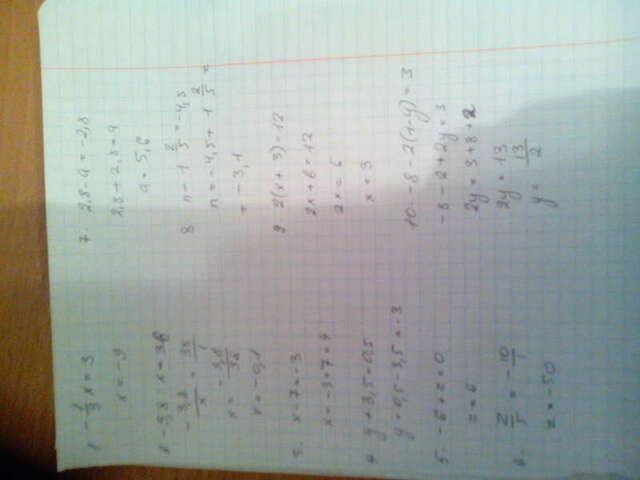 1. -1/3 x = 3
x = -9
2. -3,8 : x = 38
-3,8/x = 38/1
x = -3,8/38
x = -0,1
3. x-7=-3
x=-3+7=4
4. y+3,5=0,5
y=0,5-3,5=-3
5. -6+z=0
z=6
6. z/5 = -10/1
z=-50
7. 2,8-a=-2,8
2,8+2,8=a
a=5,6
8 n-1 2/5=-4,5
n=-4,5+1 2/5=
=-3,1
9 2(x+3)=12
2x+6=12
2x=6
x=3
10. -8-2(1-y)=3
-8-2+2y=3
2y=3+8+2
2y=13
y=13/2